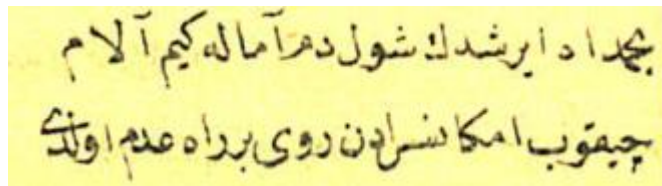 بحمدا د ایرشدك شول دم آماله كیم آلام
چیقوب امكانسزلدن روی برراه عدم اولدی